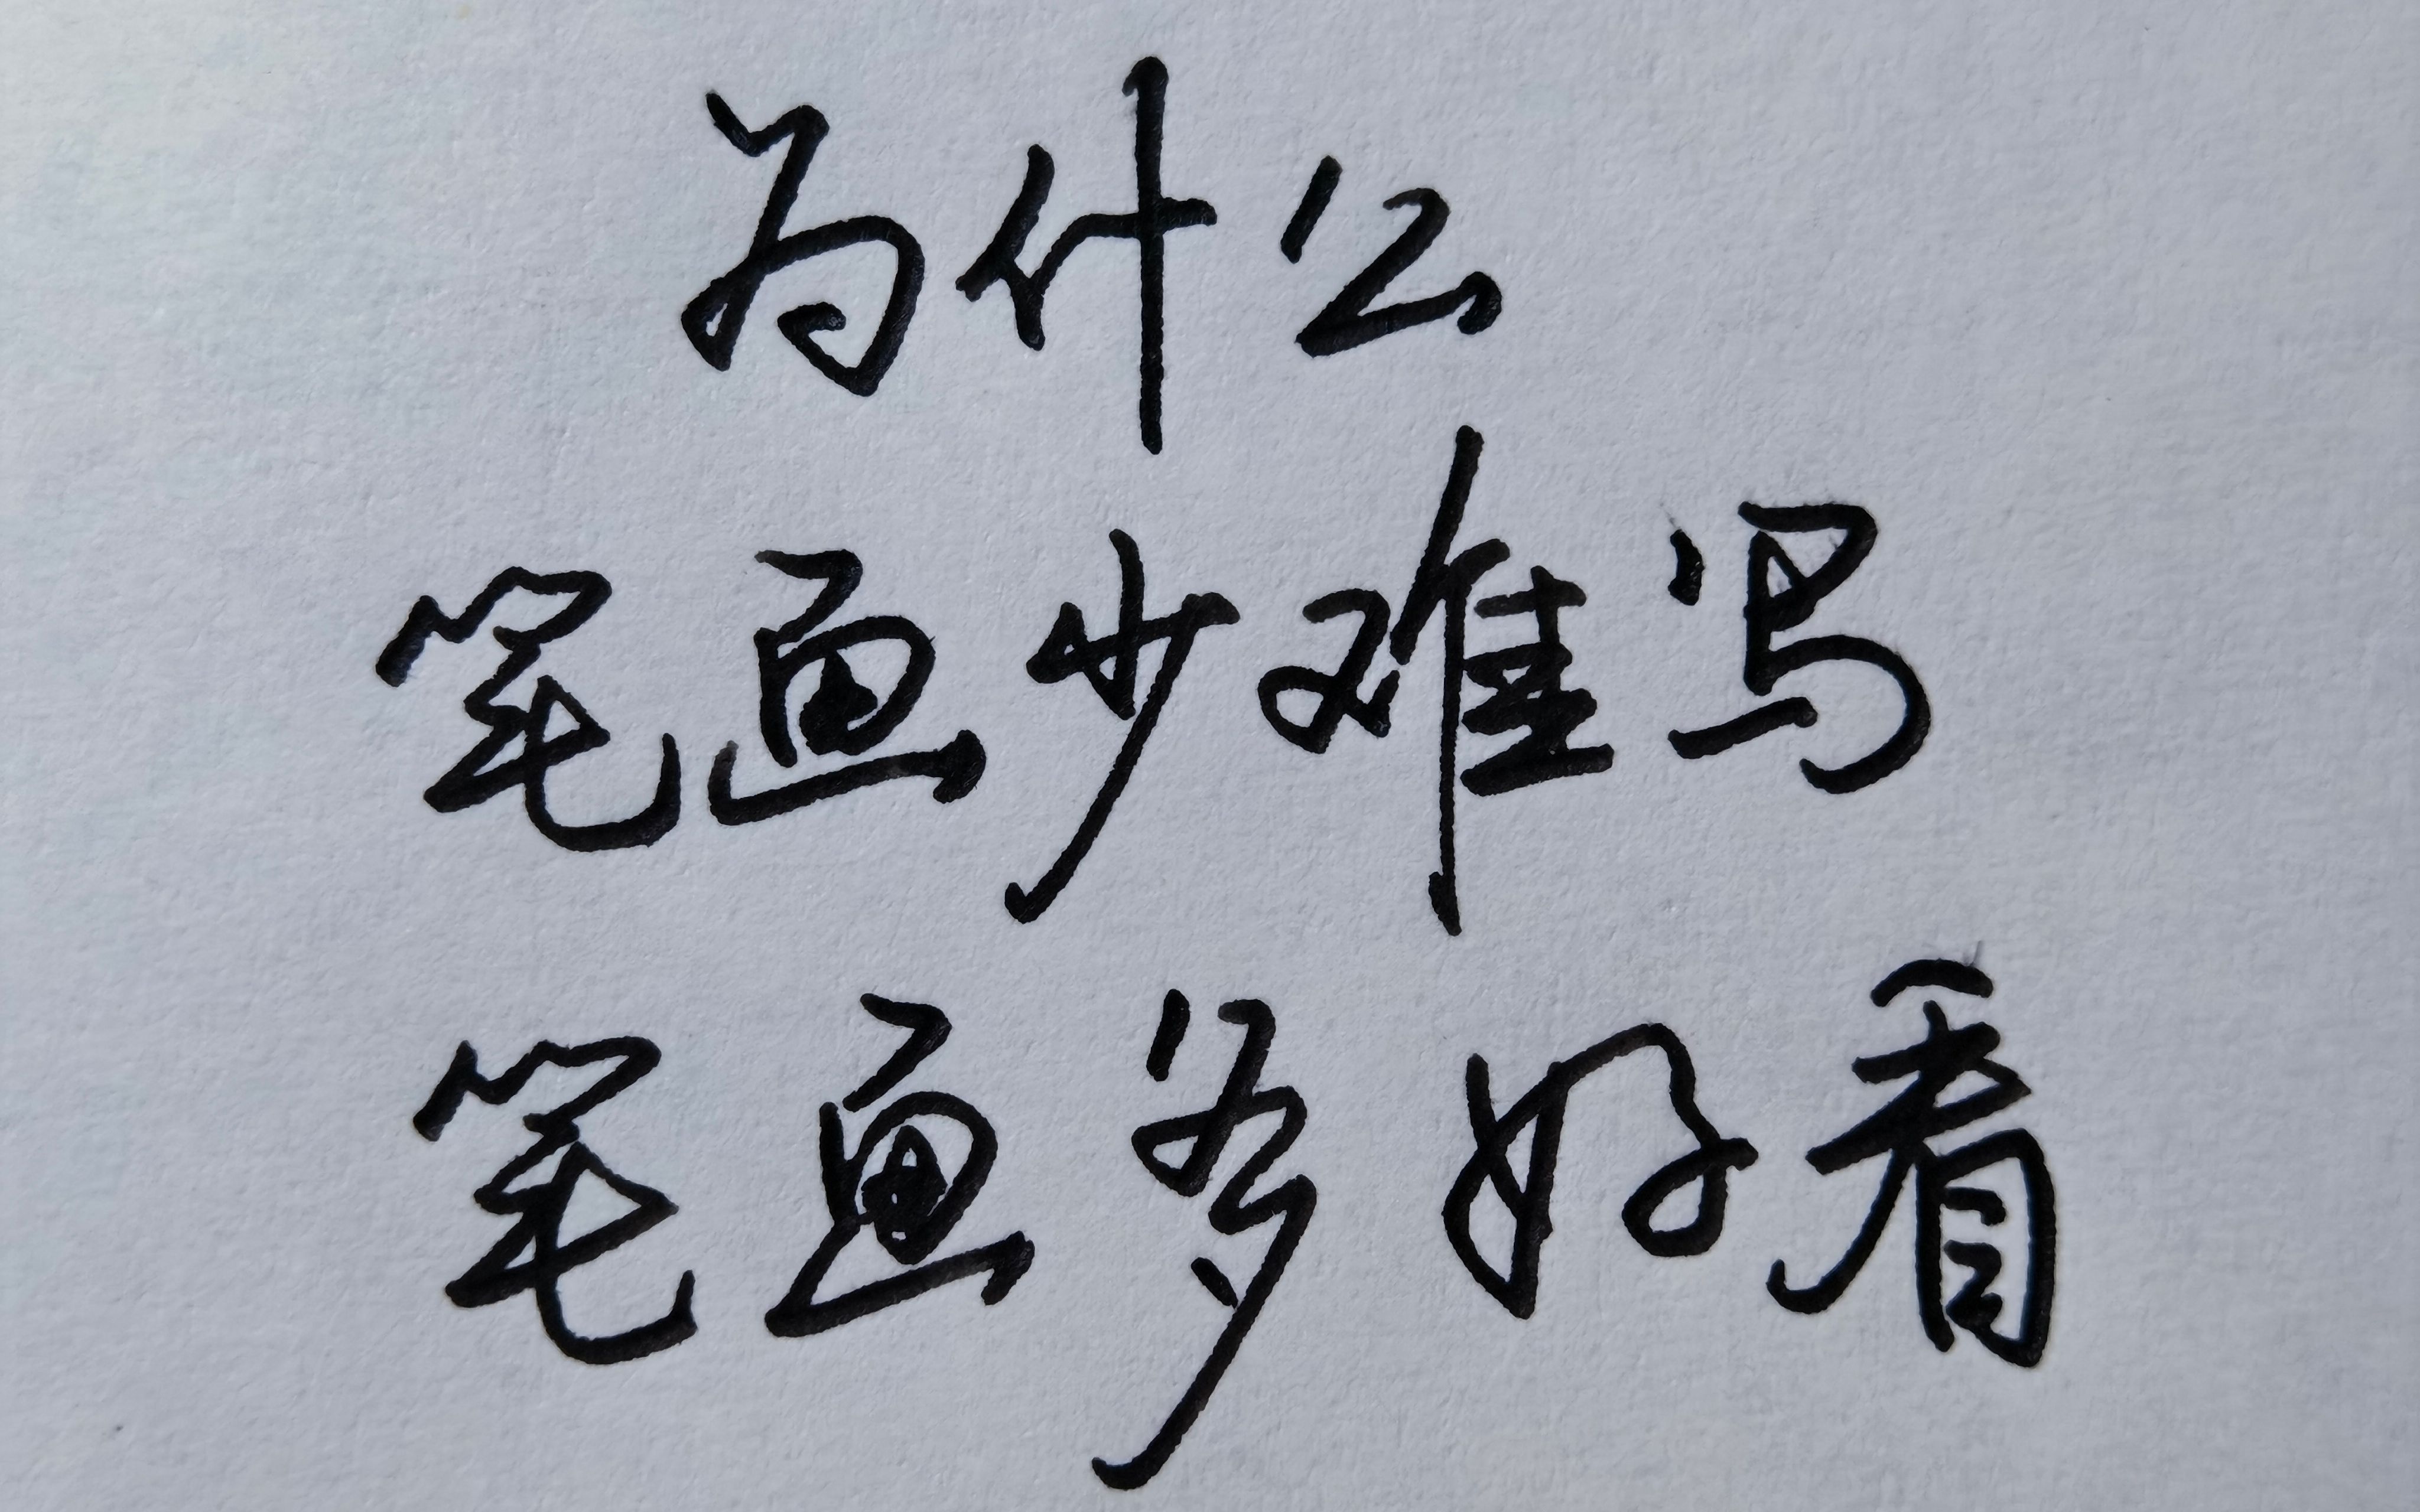 为什么
笔画少难写
笔画多好看